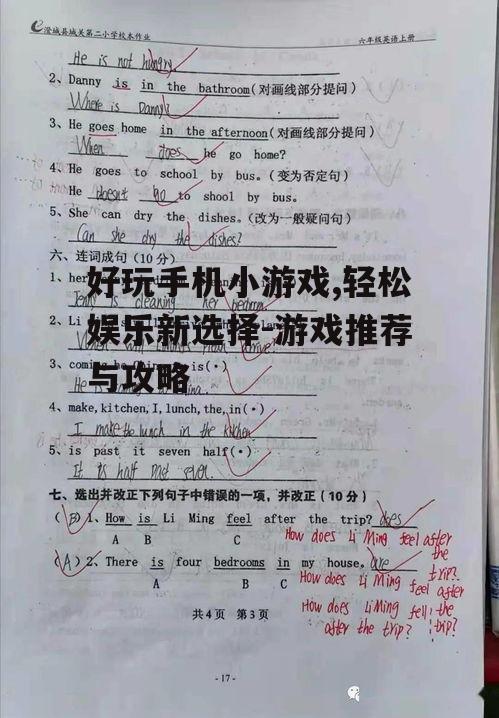 澄城县城关第二小学校本作业 六年级英语上册
He is not hungry
2、Danny is in the bathroom(对画线部分提问)
Where is Danny?
3、He goes home in the afternoon(对画线部分提问)
When does he go home?
4、He goes to school by bus。(变为否定句)
He doesn't go to shool by bus.
5、She can dry the dishes.(改为一般疑问句)
Can she dry the dishes?
六、连词成句(10分)
好玩手机小游戏,轻松
娱乐新选择-游戏推荐
与攻略
1、her
is cleaning her bedroom
2、Li
3、com is(•)
4、make,kitchen,I,lunch,the,in(•)
I make the lunch in the kitchen
5、is past it seven half(•)
It is half past seven.
七、选出并改正下列句子中错误的一项,并改正(10分)
(B)1、How is Li Ming feel after the trip? does
A B C
How does Li Ming feel after the trip?
(A)2、There is four bedrooms in my house. are
A B C
How does Li Ming feel after the trip?
How does Li Ming fell after the trip?
共4页 第3页
-17-